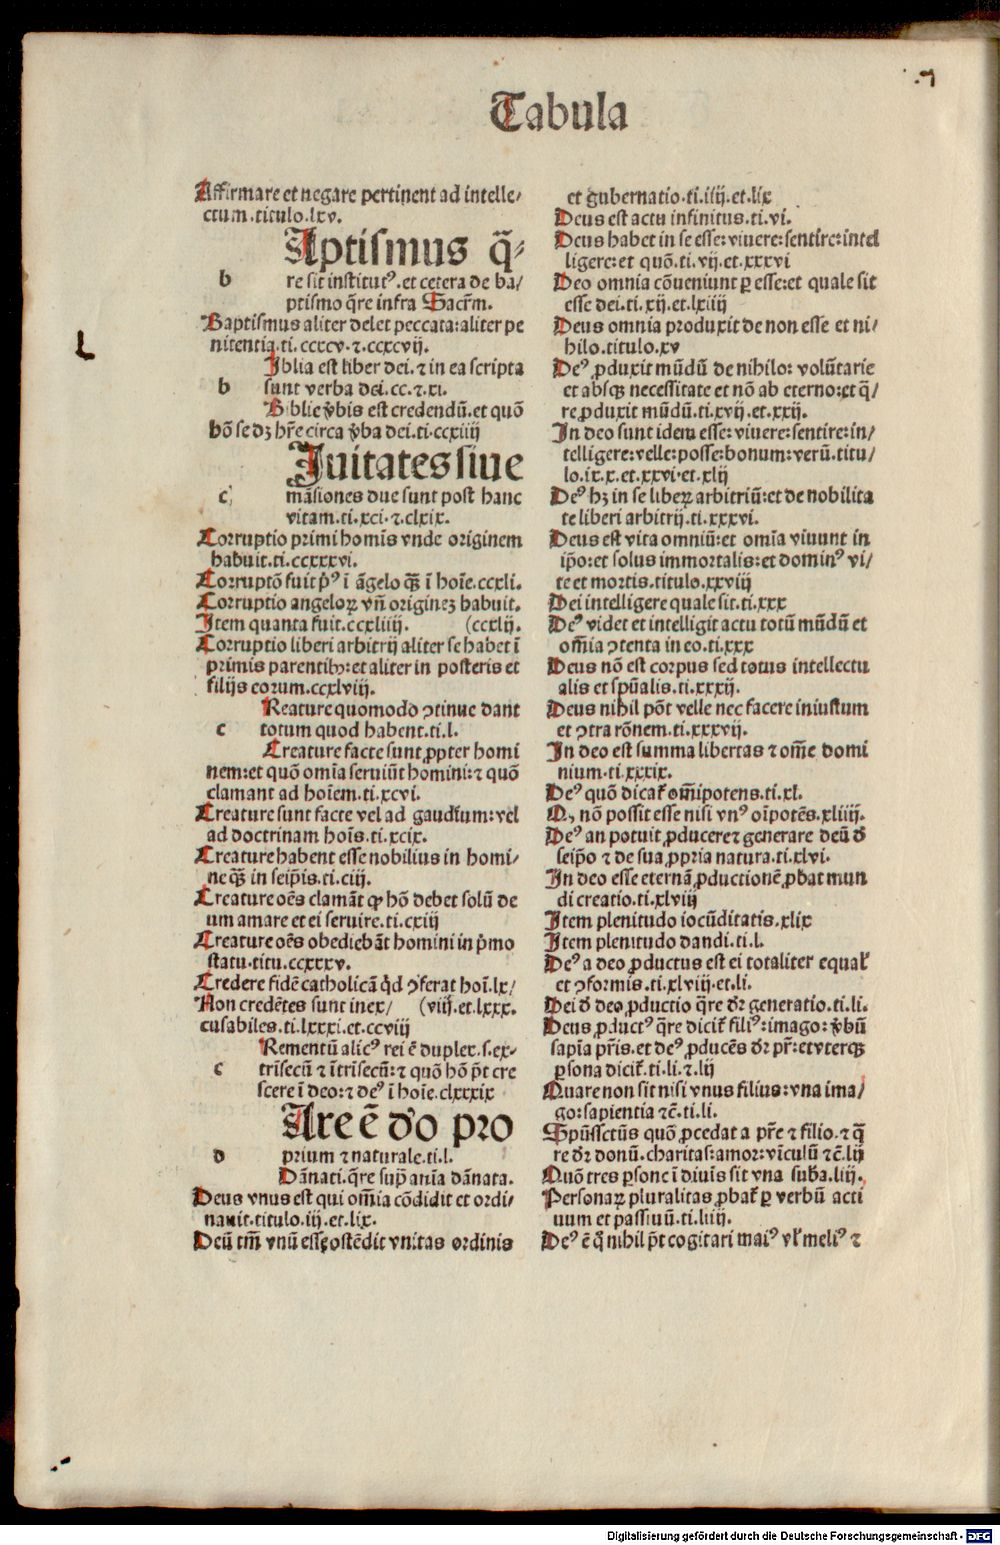 Tabula
Affirmare et negare pertinent ad intelle/
ctum.titulo.lxv.
Aptismus q̄/
b re sit institutꝰ.et cetera de ba/
ptismo q̄re infra Sacr̄m.
Baptismus aliter delet peccata:aliter pe
nitentia.ti.ccxcv.⁊.ccxcvij.
Iblia est liber dei.⁊ in ea scripta
b sunt verba dei.cc.⁊.xi.
Biblie v̄bis est credendū.et quō
hō se dꝫ hr̄e circa v̄ba dei.ti.ccxiiij
Iuitates siue
c māsiones due sunt post hanc
vitam.ti.xci.⁊.clxix.
Corruptio primi homīs vnde originem
habuit.ti.ccxxxvi.
Corruptō fuit p̄ꝰ ī āgelo qȝ̄ ī hoīe.ccxli.
Corruptio angeloꝝ vn̄ origineȝ habuit.
Item quanta fuit.ccxliiij. (ccxlij.
Corruptio liberi arbitrij aliter se habet ī
primis parentibꝫ:et aliter in posteris et
filijs eorum.ccxlviij.
Reature quomodo ꝯtinue dant
c totum quod habent.ti.l.
Creature facte sunt ꝓpter homi
nem:et quō omīa seruiūt homini:⁊ quō
clamant ad hoīem.ti.xcvi.
Creature sunt facte vel ad gaudium:vel
ad doctrinam hoīs.ti.xcix.
Creature habent esse nobilius in homi/
ne qȝ̄ in seip̄is.ti.ciij.
Creature oēs clamāt ꝙ hō debet solū de
um amare et ei seruire.ti.cxiij
Creature oēs obediebāt homini in p̄mo
statu.titu.ccxxxv.
Credere fidē catholicā qd̄ ꝯferat hoī.lx/
Non credētes sunt inex/ (viij.et.lxxx.
cusabiles.ti.lxxxi.et.ccviij
Rementū alicꝰ rei ē duplex.s.ex/
c trīsecū ⁊ ītrīsecū:⁊ quō hō p̄t cre
scere ī deo:⁊ deꝰ ī hoīe.clxxxix
Are ē d̄o pro
d prium ⁊ naturale.ti.l.
Dānati.q̄re sup̄ anīa dānata.
Deus vnus est qui om̄ia cōdidit et ordi/
nauit.titulo.iij.et.lix.
Deū tm̄ vnū esse ostēdit vnitas ordinis
et gubernatio.ti.iiij.et.lix
Deus est actu infinitus.ti.vi.
Deus habet in se esse:viuere:sentire:intel
ligere:et quō.ti.vij.et.xxxvi
Deo omnia cōueniunt ꝑ esse:et quale sit
esse dei.ti.xij.et.lxiiij
Deus omnia produxit de non esse et ni/
hilo.titulo.xv
Deꝰ ꝓduxit mūdū de nihilo: volūtarie
et absqȝ necessitate et nō ab eterno:et q̄/
re ꝓduxit mūdū.ti.xvij.et.xxij.
In deo sunt idem esse:viuere:sentire:in/
telligere:velle:posse:bonum:verū.titu/
lo.ix.x.et.xxvi.et.xlij
Deꝰ hȝ in se liberꝝ arbitriū:et de nobilita
te liberi arbitrij.ti.xxxvi.
Deus est vita omniū:et omīa viuunt in
ip̄o:et solus immortalis:et dominꝰ vi/
te et mortis.titulo.xxviij
Dei intelligere quale sit.ti.xxx
Deꝰ videt et intelligit actu totū mūdū et
om̄ia ꝯtenta in eo.ti.xxx
Deus nō est corpus sed totus intellectu
alis et spūalis.ti.xxxij.
Deus nihil pōt velle nec facere iniustum
et ꝯtra rōnem.ti.xxxvij.
In deo est summa libertas ⁊ om̄e domi
nium.ti.xxxix.
Deꝰ quō dicat̄ om̄ipotens.ti.xl.
Q, nō possit esse nisi vnꝰ oīpotēs.xliiij.
Deꝰ an potuit ꝓducere⁊ generare deū d̄
seip̄o ⁊ de sua ꝓpria natura.ti.xlvi.
In deo esse eternā ꝓductionē ꝓbat mun
di creatio.ti.xlviij
Item plenitudo iocūditatis.xlix
Item plenitudo dandi.ti.l.
Deꝰ a deo ꝓductus est ei totaliter equal̄
et ꝯformis.ti.xlviij.et.li.
Dei d̄ deo ꝓductio q̄re dr̄ generatio.ti.li.
Deus ꝓductꝰ q̄re dicit̄ filiꝰ:imago:v̄bū
sapīa pr̄is.et deꝰ ꝓducēs dr̄ pr̄:et vterqȝ
ꝑsona dicit̄.ti.li.⁊.lij
Quare non sit nisi vnus filius:vna ima/
go:sapientia ⁊c̄.ti.li.
Spūssctūs quō ꝓcedat a pr̄e ⁊ filio.⁊ q̄
re dr̄ donū.charitas:amor:vīculū ⁊c̄.lij
Quō tres ꝑsone ī diuīs sit vna sub̄a.liij.
Personaꝝ pluralitas ꝓbat̄ ꝑ verbū acti
uum et passiuū.ti.liiij.
Deꝰ ē q̄ nihil p̄t cogitari maiꝰ vl̄ meliꝰ ⁊
Digitalisierung gefördert durch die Deutsche Forschungsgemeinschaft - DFG